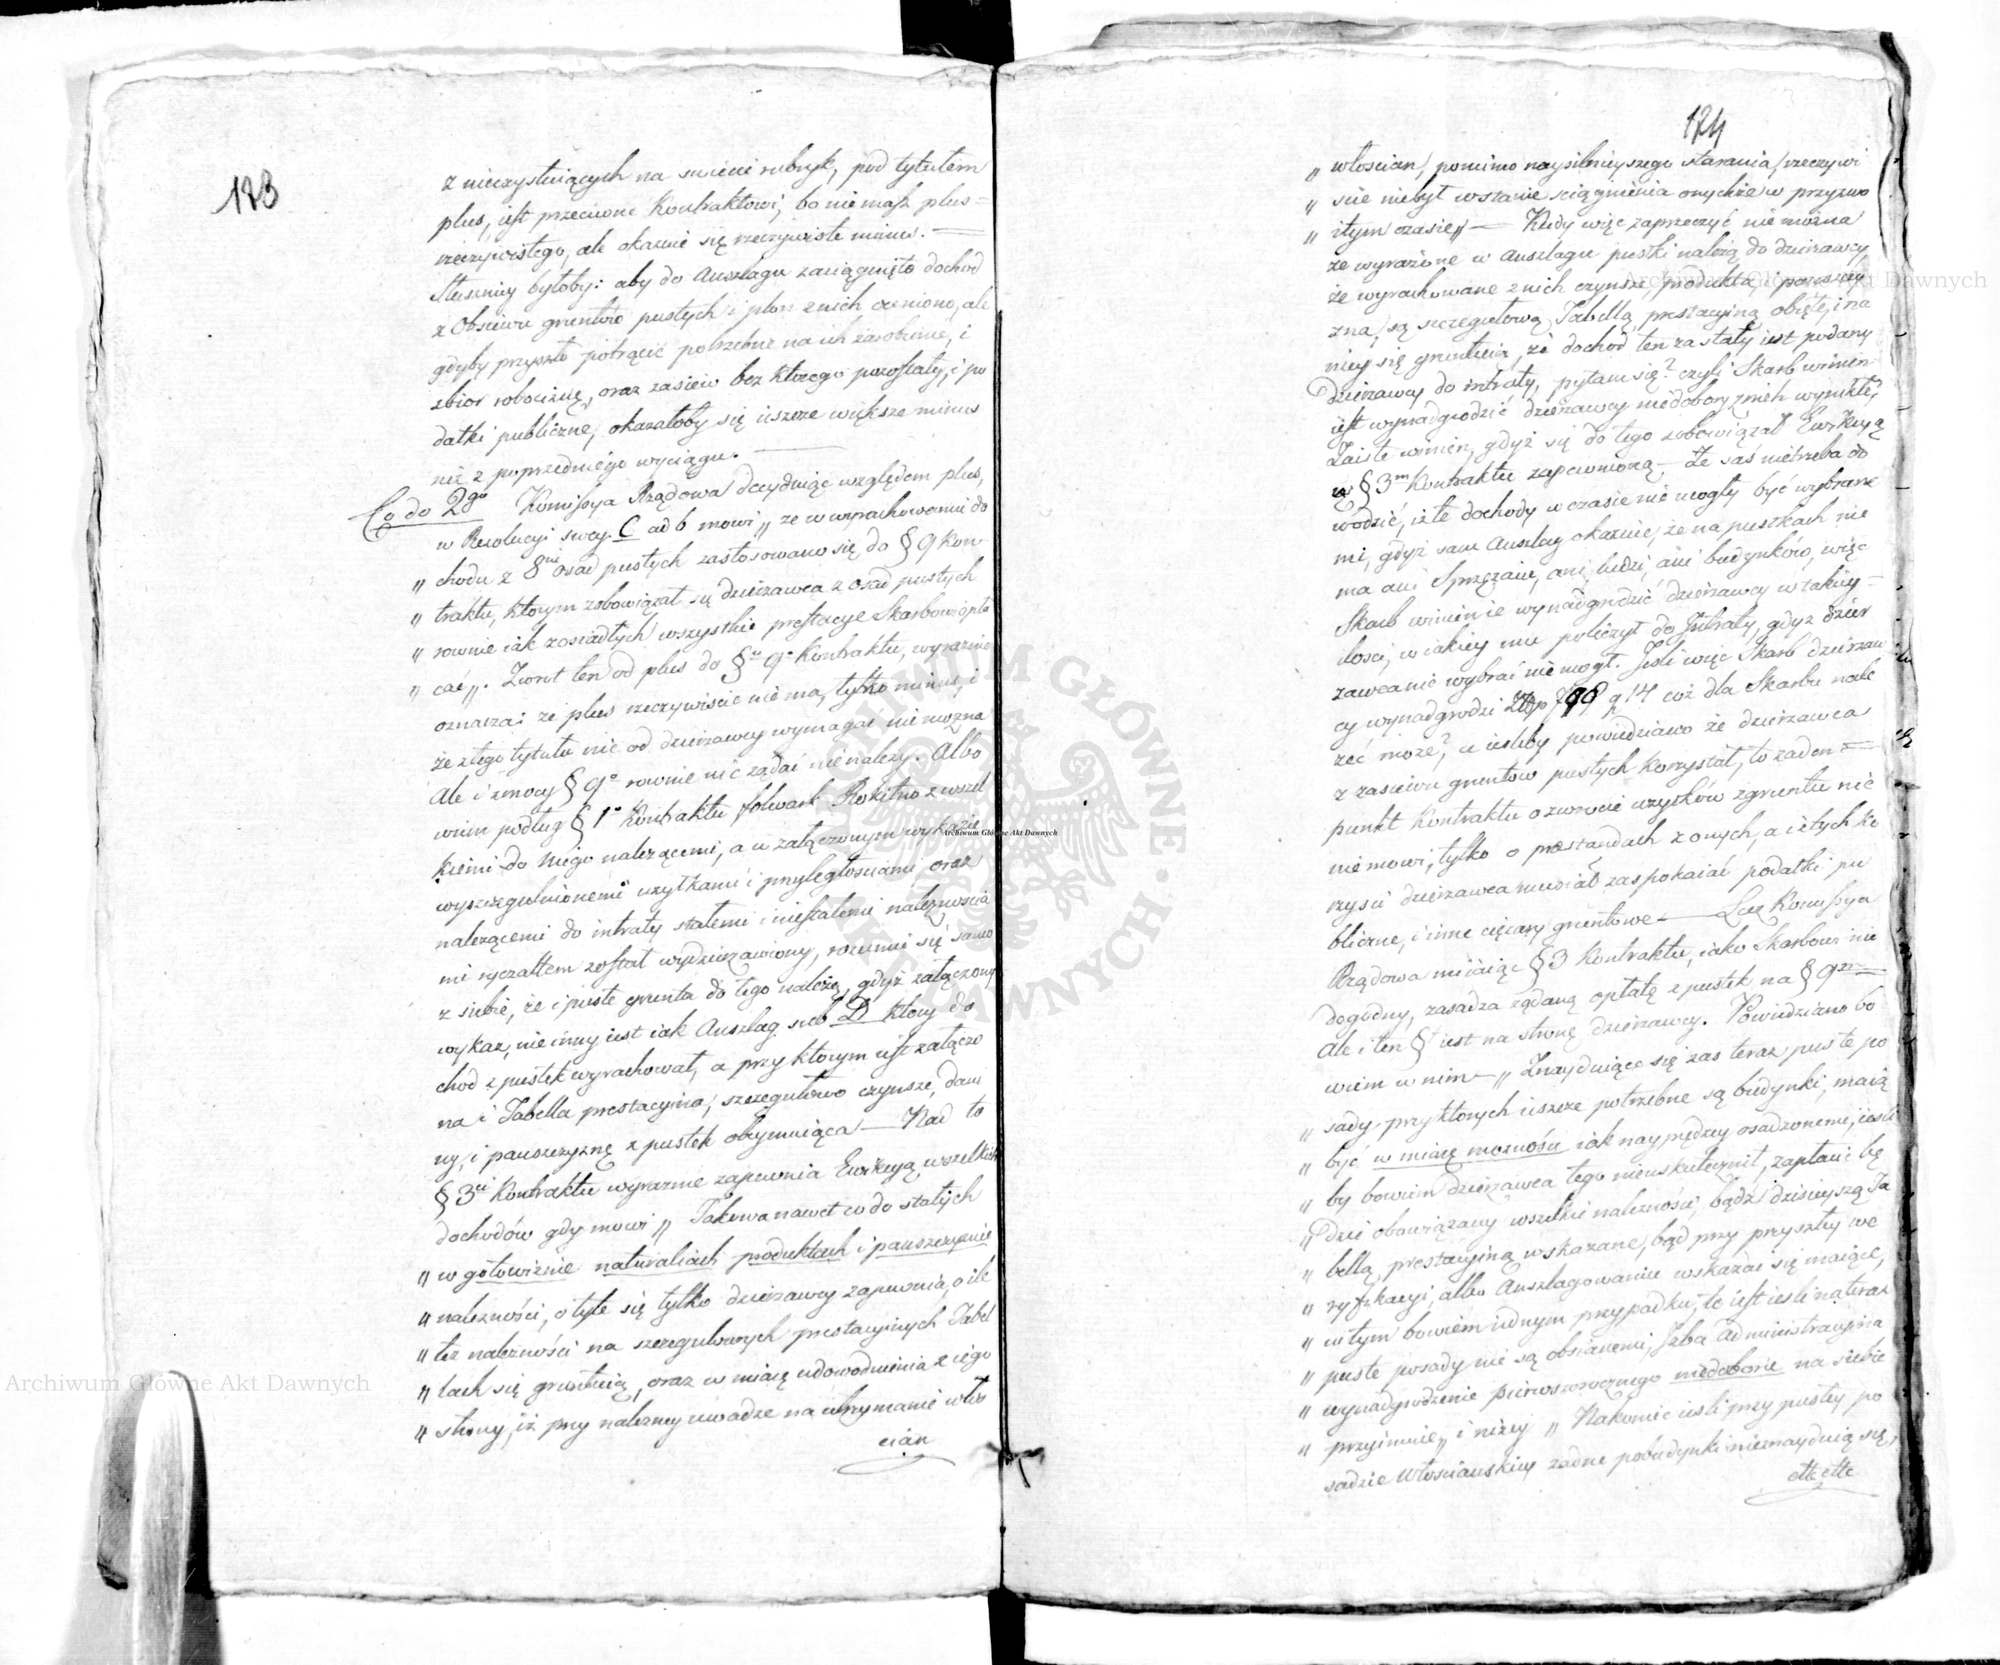 123
z nieexystuiących na swiecie rubryk, pod tytułem
plus, iest przeciwne Kontraktowi, bo nie masz plus
rzeczywistego, ale okazuie się rzeczywiste minus. —
Słuszniey byłoby: aby do Auszlagu zaciągnięto dochod
z Obsiewu gruntów pustych i plon z nich oceniono, ale
gdyby przyszło potrącić potrzebne na ich zarobienie, i
zbior robociznę, oraz zasiew bez ktorego pozostały, i po
datki publiczne, okazałoby się ieszcze większe minus
niż z poprzedniego wyciągu. —
Co do 2go Komissya Rządowa decyduiąc względem plus,
w Rezolucyi swey C ad b mowi „ ze w wyrachowaniu do
„ chodu z 8miu osad pustych zastosowano się do § 9 Kon
„ traktu, ktorym zobowiązał się dzierzawca z osad pustych
„ rownie iak zosiadłych wszystkie prestacye Skarbowi opła
„ cać „. Zwrot ten od plus do §u 9o Kontraktu, wyraznie
oznacza: ze plus rzeczywiscie nie ma, tylko minus, i
że z tego tytułu nic od dzierzawcy wymagać nie można
Ale i z mocy § 9o rownie nic ządać nie należy. Albo
wiem podług § 1o Kontraktu folwark Rokitno z wszel
kiemi do niego nalezącemi, a w załączonym wykazie
wyszczegulnionemi uzytkami i przyległosciami oraz
nalezącemi do intraty stałemi i niestałemi nalezytościa
mi ryczałtem został wydzierzawiony, rozumie się samo
z siebie, że i puste grunta do tego należą, gdyż załączony
wykaz, nie inny iest iak Auszlag sub D ktory do
chod z pustek wyrachował, a przy ktorym iest załączo
na i Tabella prestacyina, szczegułowo czynsze, dani
ny, i pańszczyznę z pustek obeymuiąca — Nad to
§ 3ci Kontraktu wyraznie zapewnia Ewikcyą wszelkich
dochodów gdy mowi „ Takowa nawet co do stałych
„ w gotowiznie naturaliach produktach i panszczyznie
„ należności, o tyle się tylko dzierzawcy zapewnia, o ile
„ też należności na szczegułowych prestacyinych Tabel
„ lach się gruntuią, oraz w miarę udowodnienia z iego
„ strony, iż przy należney uwadze na utrzymanie włos
cian
124
„ włoscian, pomimo naysilnieyszego starania, rzeczywi
„ scie niebył wstanie sciągnienia onychże w przyzwo
„ itym czasie „ — Kiedy więc zaprzeczyć nie można
ze wyrażone w Auszlagu pustki należą do dzierzawcy
że wyrachowane z nich czynsze, produkta, i pańszczy
zna, są szczegułową Tabellą prestacyiną obięte, i na
niey się gruntuią, że dochod ten za stały iest podany
Dzierzawcy do intraty, pytam się? czyli Skarb winien
iest wynadgrodzić dzierzawcy niedobory z nich wynikłe?
Zaiste winien, gdyż się do tego zobowiązał Ewikcyą
w § 3m Kontraktu zapewnioną — Ze zaś nietrzeba do
wodzić, iż te dochody w czasie nie mogły być wybrane
mi, gdyż sam Auszlag okazuie, że na pustkach nie
ma ani Sprzężaiu, ani ludzi, ani budynków, więc
Skarb winien ie wynadgrodzić dzierzawcy w takiey
ilosci, w iakiey mu policzył do Intraty, gdyż dzier
zawca nic wybrać nie mogł. Jeśli więc Skarb dzierzaw
cy wynadgrodzi Złp 798 g 14 coż dla Skarbu nale
żeć może? a ieśliby powiedziano że dzierzawca
z zasiewu gruntów pustych korzystał, to zaden
punkt Kontraktu o zwrocie użytków z gruntu nic
nie mowi, tylko o prestandach z onych, a iż tych ko
rzysci dzierzawca musiał zaspokaiać podatki pu
bliczne, i inne ciężary gruntowe — Lecz Komissya
Rządowa miiaiąc § 3 Kontraktu, iako Skarbowi nie
dogodny, zasadza ządaną opłatę z pustek na § 9m
Ale i ten § iest na stronę dzierzawcy. Powiedziano bo
wiem w nim — „ Znayduiące się zas teraz puste po
„ sady, przy ktorych ieszcze potrzebne są budynki, maią
„ być w miarę mozności iak nayprędzey osadzonemi, ieśli
„ by bowiem dzierzawca tego nieuskutecznił, zapłacić bę
„ dzie obowiązany wszelkie należności, bądź dzisieyszą Ta
„ bellą prestacyiną wskazane, bądz przy przyszłey we
„ ryfikacyi, albo Auszlagowaniu wskazać się maiące,
„ w tym bowiem iednym przypadku, to iest iesli na teraz
„ puste posady nie są obsianemi, Izba Administracyina
„ wynadgrodzenie pierwszorocznego niedoboru na siebie
„ przyimuie „ i niżey „ Nakoniec iesli przy pustey po
sadzie Włosciańskiey żadne pobudynki nieznayduią się,
etc etc
Archiwum Główne Akt Dawnych
Archiwum Główne Akt Dawnych
Archiwum Główne Akt Dawnych
ARCHIWUM GŁÓWNE AKT DAWNYCH